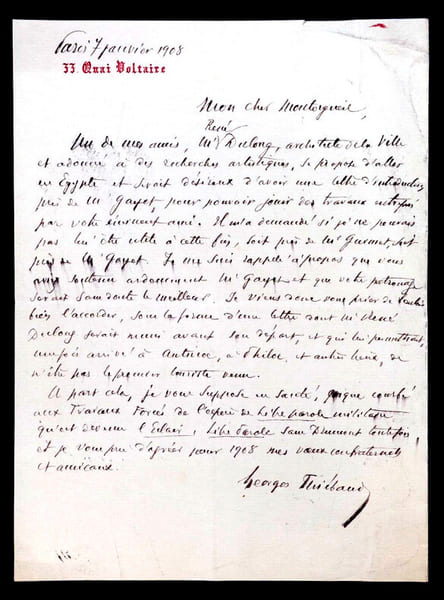 Paris 7 janvier 1908
33. Quai Voltaire
Mon cher Montorgueil,
René
Un de mes amis, Mr Dulong, architecte de la Ville
et adonné à des recherches artistiques, se propose d'aller
en Egypte et serait désireux d'avoir une lettre d'introduction
près de Mr Gayet pour pouvoir jouir des travaux
par votre éminent ami. Il m'a demandé si je ne pouvais
pas lui être utile à cette fin, soit près de Mr Guimet, soit
près de Mr Gayet. Je me suis rappelé à propos que vous
avez soutenu ardemment Mr Gayet et que votre patronage
serait sans doute le meilleur. Je viens donc vous prier de vouloir
bien l'accorder, sous la forme d'une lettre dont Mr René
Dulong serait muni avant son départ, et qui lui permettrait,
une fois arrivé à Antinoé, à Philoe, et autres lieux, de
n'être pas le premier touriste venu.
A part cela, je vous suppose en santé, quoique courbé
aux Travaux forcés de l'espèce de Libre parole militaire
qu'est devenu l'Eclair, Libre Parole sans Drumont toutefois,
et je vous prie d'agréer pour 1908 mes vœux confraternels
et amicaux.
Georges Thiébaud